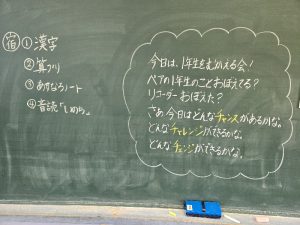 宿 ①漢字
②算プリ
③あすなろノート
④音読「
今日は、1年生をむかえる会!
ペアの1年生のことおぼえてる?
リコーダーおぼえた?
さあ、今日はどんなチャンスがあるかな。
どんなチャレンジができるかな。
どんなチェンジができるかな。